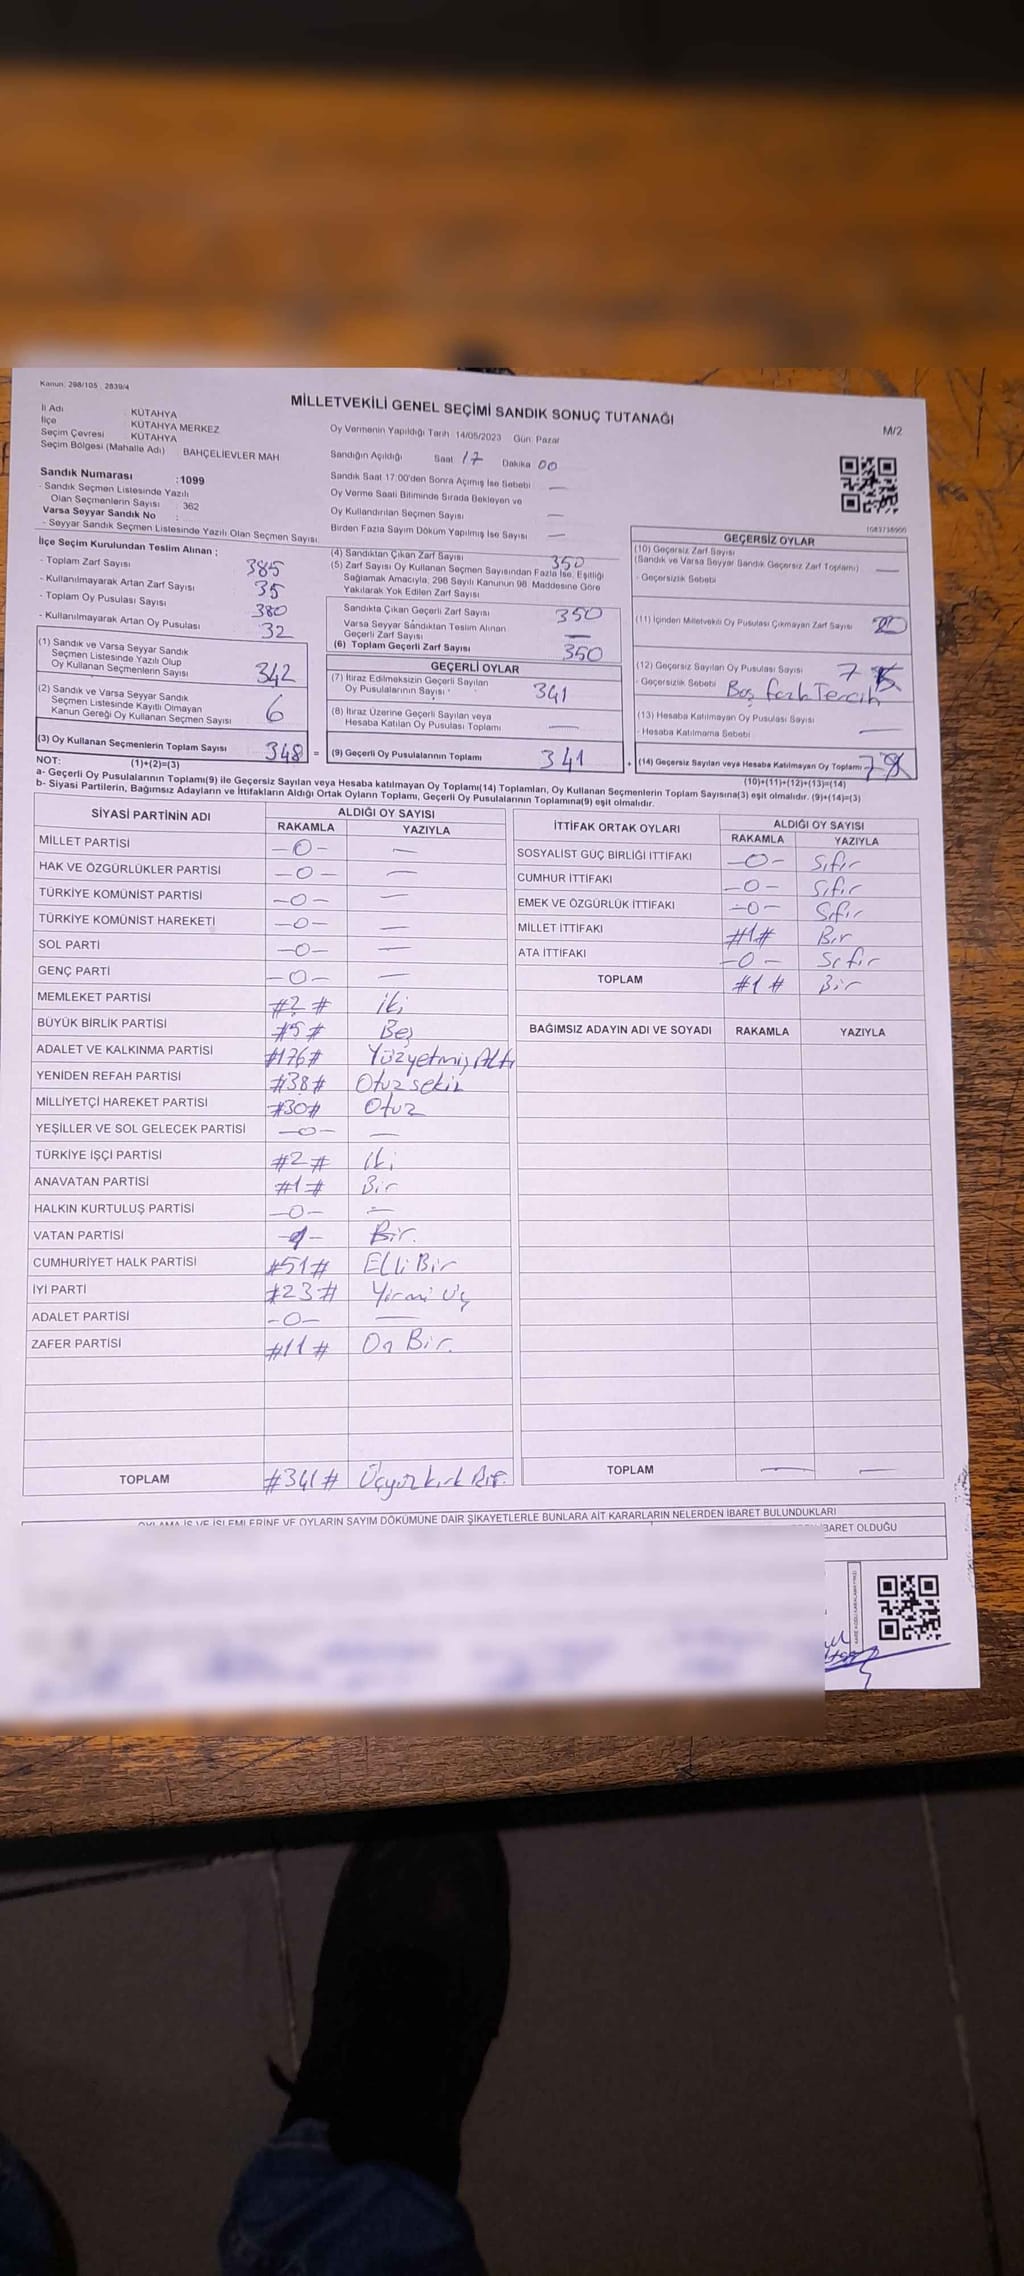 Kanun: 298/105 , 2839/4
MİLLETVEKİLİ GENEL SEÇİMİ SANDIK SONUÇ TUTANAĞI
M/2
İl Adı : KÜTAHYA
İlçe : KÜTAHYA MERKEZ
Seçim Çevresi : KÜTAHYA
Seçim Bölgesi (Mahalle Adı) : BAHÇELİEVLER MAH
Sandık Numarası : 1099
- Sandık Seçmen Listesinde Yazılı
Olan Seçmenlerin Sayısı : 362
Varsa Seyyar Sandık No :
- Seyyar Sandık Seçmen Listesinde Yazılı Olan Seçmen Sayısı
Oy Vermenin Yapıldığı Tarih: 14/05/2023 Gün: Pazar
Sandığın Açıldığı Saat 17 Dakika 00
Sandık Saat 17:00'den Sonra Açılmış İse Sebebi —
Oy Verme Saati Bitiminde Sırada Bekleyen ve
Oy Kullandırılan Seçmen Sayısı —
Birden Fazla Sayım Döküm Yapılmış İse Sayısı —
İlçe Seçim Kurulundan Teslim Alınan ;
- Toplam Zarf Sayısı 385
- Kullanılmayarak Artan Zarf Sayısı 35
- Toplam Oy Pusulası Sayısı 380
- Kullanılmayarak Artan Oy Pusulası 32
(1) Sandık ve Varsa Seyyar Sandık
Seçmen Listesinde Yazılı Olup
Oy Kullanan Seçmenlerin Sayısı 342
(2) Sandık ve Varsa Seyyar Sandık
Seçmen Listesinde Kayıtlı Olmayan
Kanun Gereği Oy Kullanan Seçmen Sayısı 6
(3) Oy Kullanan Seçmenlerin Toplam Sayısı 348 =
(1)+(2)=(3)
(4) Sandıktan Çıkan Zarf Sayısı 350
(5) Zarf Sayısı Oy Kullanan Seçmen Sayısından Fazla İse, Eşitliği
Sağlamak Amacıyla, 298 Sayılı Kanunun 98. Maddesine Göre
Yakılarak Yok Edilen Zarf Sayısı
Sandıkta Çıkan Geçerli Zarf Sayısı 350
Varsa Seyyar Sandıktan Teslim Alınan
Geçerli Zarf Sayısı —
(6) Toplam Geçerli Zarf Sayısı 350
GEÇERLİ OYLAR
(7) İtiraz Edilmeksizin Geçerli Sayılan
Oy Pusulalarının Sayısı 341
(8) İtiraz Üzerine Geçerli Sayılan veya
Hesaba Katılan Oy Pusulası Toplamı —
(9) Geçerli Oy Pusulalarının Toplamı 341 +
GEÇERSİZ OYLAR
(10) Geçersiz Zarf Sayısı
(Sandık ve Varsa Seyyar Sandık Geçersiz Zarf Toplamı) —
- Geçersizlik Sebebi
(11) İçinden Milletvekili Oy Pusulası Çıkmayan Zarf Sayısı
(12) Geçersiz Sayılan Oy Pusulası Sayısı 7
- Geçersizlik Sebebi Boş fazla Tercih
(13) Hesaba Katılmayan Oy Pusulası Sayısı
- Hesaba Katılmama Sebebi —
(14) Geçersiz Sayılan veya Hesaba Katılmayan Oy Toplamı 7
(10)+(11)+(12)+(13)=(14)
NOT:
a- Geçerli Oy Pusulalarının Toplamı(9) ile Geçersiz Sayılan veya Hesaba katılmayan Oy Toplamı(14) Toplamları, Oy Kullanan Seçmenlerin Toplam Sayısına(3) eşit olmalıdır. (9)+(14)=(3)
b- Siyasi Partilerin, Bağımsız Adayların ve İttifakların Aldığı Ortak Oyların Toplamı, Geçerli Oy Pusulalarının Toplamına(9) eşit olmalıdır.
SİYASİ PARTİNİN ADI ALDIĞI OY SAYISI
RAKAMLA YAZIYLA
MİLLET PARTİSİ -0- —
HAK VE ÖZGÜRLÜKLER PARTİSİ -0- —
TÜRKİYE KOMÜNİST PARTİSİ -0- —
TÜRKİYE KOMÜNİST HAREKETİ -0- —
SOL PARTİ -0- —
GENÇ PARTİ -0- —
MEMLEKET PARTİSİ #2# iki
BÜYÜK BİRLİK PARTİSİ #5# Beş
ADALET VE KALKINMA PARTİSİ #176# Yüzyetmiş Altı
YENİDEN REFAH PARTİSİ #38# Otuzsekiz
MİLLİYETÇİ HAREKET PARTİSİ #30# Otuz
YEŞİLLER VE SOL GELECEK PARTİSİ -0- —
TÜRKİYE İŞÇİ PARTİSİ #2# iki
ANAVATAN PARTİSİ #1# Bir
HALKIN KURTULUŞ PARTİSİ -0- —
VATAN PARTİSİ -1- Bir.
CUMHURİYET HALK PARTİSİ #51# Elli Bir
İYİ PARTİ #23# Yirmi üç
ADALET PARTİSİ -0- —
ZAFER PARTİSİ #11# On Bir.
TOPLAM #341# Üçyüzkırk Bir.
İTTİFAK ORTAK OYLARI ALDIĞI OY SAYISI
RAKAMLA YAZIYLA
SOSYALİST GÜÇ BİRLİĞİ İTTİFAKI -0- Sıfır
CUMHUR İTTİFAKI -0- Sıfır
EMEK VE ÖZGÜRLÜK İTTİFAKI -0- Sıfır
MİLLET İTTİFAKI #1# Bir
ATA İTTİFAKI -0- Sıfır
TOPLAM #1# Bir
BAĞIMSIZ ADAYIN ADI VE SOYADI RAKAMLA YAZIYLA
TOPLAM — —
OYLAMA İŞ VE İŞLEMLERİNE VE OYLARIN SAYIM DÖKÜMÜNE DAİR ŞİKAYETLERLE BUNLARA AİT KARARLARIN NELERDEN İBARET BULUNDUKLARI
İBARET OLDUĞU